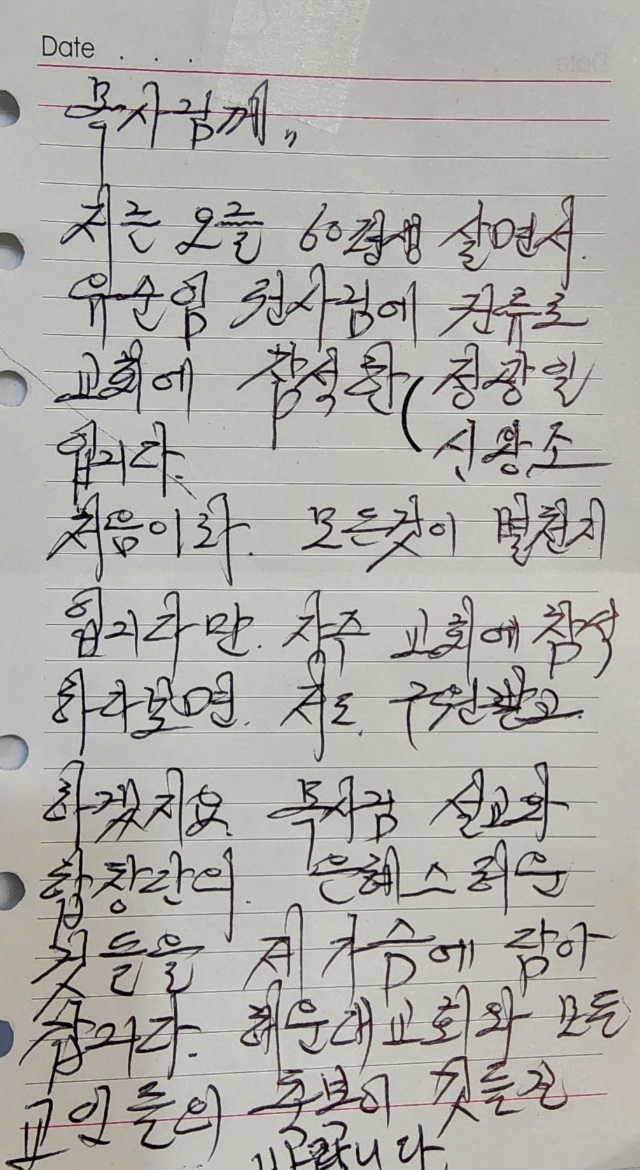 Date . . .
목사님께,,
저는 오늘 60평생 살면서.
유순임 권사님에 권유로
교회에 참석한 (정광일
신왕조
입니다.
처음이라. 모든것이 별천지
입니다만. 자주 교회에 참석
하다보면. 저도. 구원받고
하겠지요. 목사님 설교와
합창단의. 은혜스러운
것들을 저 가슴에 담아
갑니다. 해운대교회와 모든
교인들의 축복이 깃들길
바랍니다.